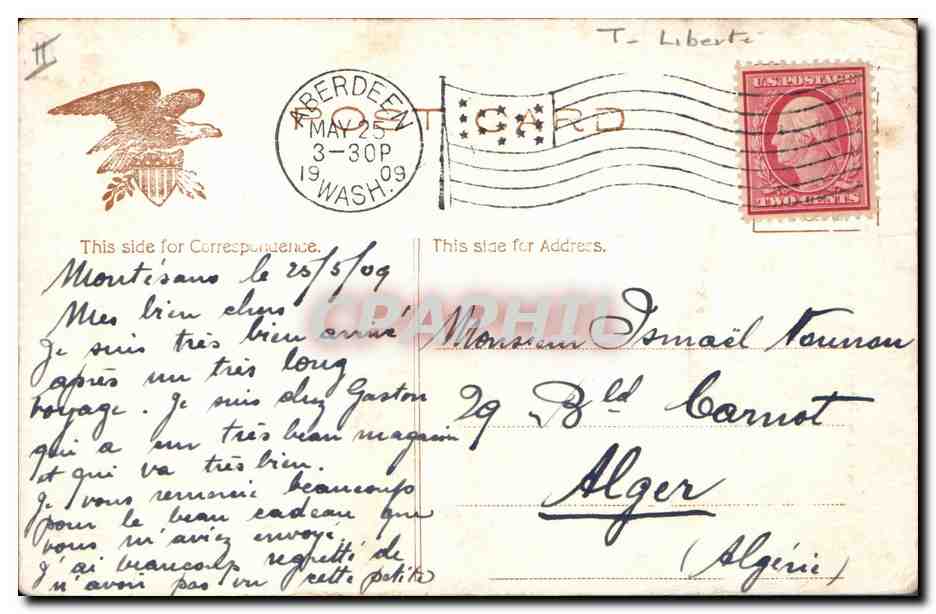 II
T- Liberté
POST CARD
ABERDEEN
MAY 25
3-30P
1909
WASH.
U.S. POSTAGE
TWO CENTS
This side for Correspondence.
This side for Address.
CPARHTL
Montésano le 25/5/09
Mes bien chers
Je suis très bien arrivé
après un très long
voyage. Je suis chez Gaston
qui a un très beau magasin
et qui va très bien.
Je vous remercie beaucoup
pour le beau cadeau que
vous m'aviez envoyé
J'ai beaucoup regretté de
n'avoir pas vu cette petite
Monsieur Ismaël Nounou
29 Bld Carnot
Alger
(Algérie)